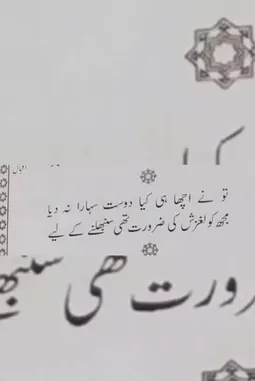 اقبال
تو نے اچھا ہی کیا دوست سہارا نہ دیا
مجھ کو لغزش کی ضرورت تھی سنبھلنے کے لیے
ضرورت تھی سنبھ